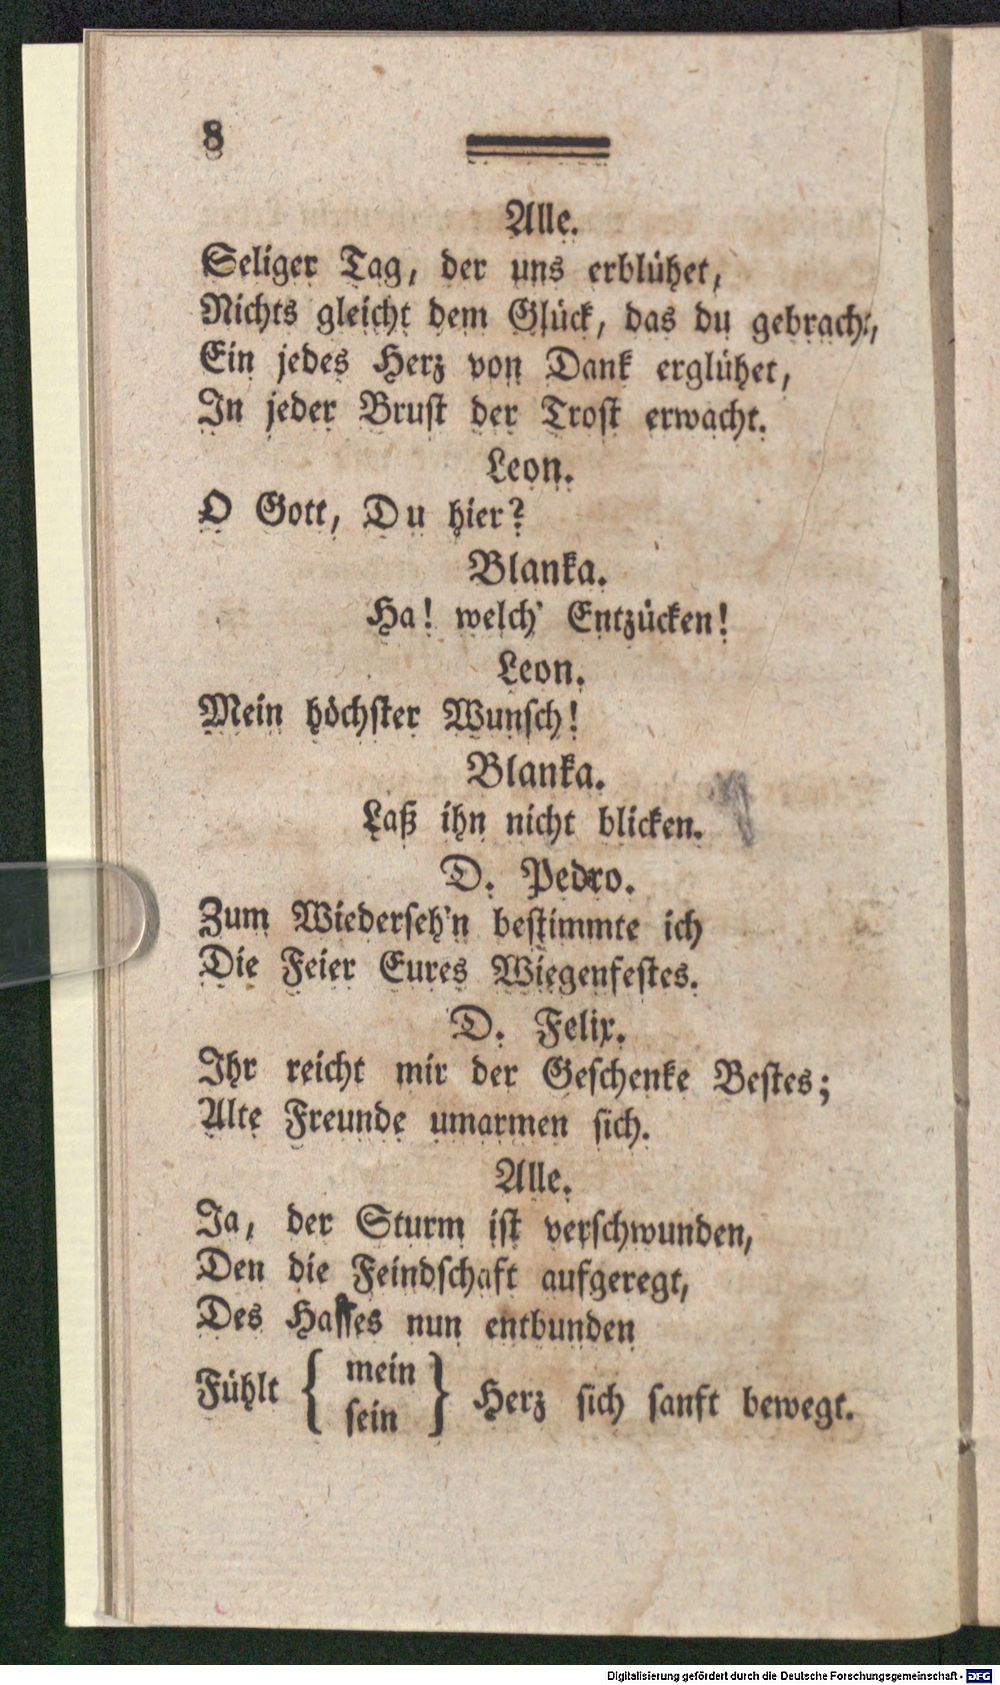 8
Alle.
Seliger Tag, der uns erblühet,
Nichts gleicht dem Glück, das du gebracht,
Ein jedes Herz von Dank erglühet,
In jeder Brust der Trost erwacht.
Leon.
O Gott, Du hier?
Blanka.
Ha! welch' Entzücken!
Leon.
Mein höchster Wunsch!
Blanka.
Laß ihn nicht blicken.
D. Pedro.
Zum Wiederseh'n bestimmte ich
Die Feier Eures Wiegenfestes.
D. Felix.
Ihr reicht mir der Geschenke Bestes;
Alte Freunde umarmen sich.
Alle.
Ja, der Sturm ist verschwunden,
Den die Feindschaft aufgeregt,
Des Hasses nun entbunden
Fühlt { mein
sein } Herz sich sanft bewegt.
Digitalisierung gefördert durch die Deutsche Forschungsgemeinschaft - DFG